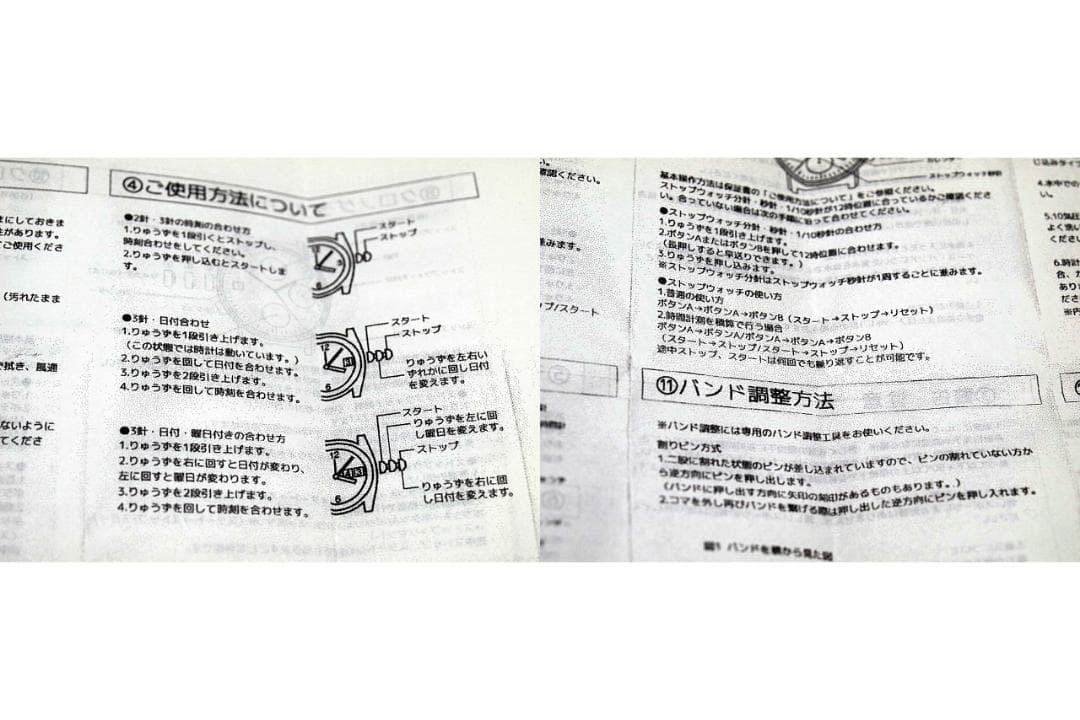 まにしておきま
性があります。
でご使用くださ
(汚れたまま
で拭き、風通
ないように
てくださ
④ご使用方法について
●2針・3針の時刻の合わせ方
1.りゅうずを1段引くとストップし、
時刻合わせをしてください。
2.りゅうずを押し込むとスタートしま
す。
スタート
ストップ
●3針・日付合わせ
1.りゅうずを1段引き上げます。
(この状態では時計は動いています。)
2.りゅうずを回して日付を合わせます。
3.りゅうずを2段引き上げます。
4.りゅうずを回して時刻を合わせます。
スタート
ストップ
りゅうずを左右い
ずれかに回し日付
を変えます。
●3針・日付・曜日付きの合わせ方
1.りゅうずを1段引き上げます。
2.りゅうずを右に回すと日付が変わり、
左に回すと曜日が変わります。
3.りゅうずを2段引き上げます。
4.りゅうずを回して時刻を合わせます。
スタート
りゅうずを左に回
し曜日を変えます。
ストップ
りゅうずを右に回
し日付を変えます。
確認ください。
進みます。
ップ/スタート
ストップウォッチ秒針
基本操作方法は保証書の「ご使用方法について」をご参照ください。
ストップウォッチ分針・秒針・1/10秒針が12時位置に合っているかご確認くださ
い。合っていない場合は次の手順に沿って合わせてください。
●ストップウォッチ分針・秒針・1/10秒針の合わせ方
1.りゅうずを1段引き上げます。
2.ボタンAまたはボタンBを押して12時位置に合わせます。
(長押しすると早送りできます。)
3.りゅうずを押し込みます。
※ストップウォッチ分針はストップウォッチ秒針が1周するごとに進みます。
●ストップウォッチの使い方
1.普通の使い方
ボタンA→ボタンA→ボタンB(スタート→ストップ→リセット)
2.時間計測を積算で行う場合
ボタンA→ボタンA/ボタンA→ボタンA→ボタンB
(スタート→ストップ/スタート→ストップ→リセット)
途中ストップ、スタートは何回でも繰り返すことが可能です。
⑪バンド調整方法
※バンド調整には専用のバンド調整工具をお使いください。
割りピン方式
1.二股に割れた状態のピンが差し込まれていますので、ピンの割れていない方か
ら逆方向にピンを押し出します。
(バンドに押し出す方向に矢印の刻印があるものもあります。)
2.コマを外し再びバンドを繋げる際は押し出した逆方向にピンを押し入れます。
図1 バンドを横から見た図
じ込みタイプ
4.水中での
5.10気圧
よく洗い
くださ
6.時計
合、
あり
ださ
※円